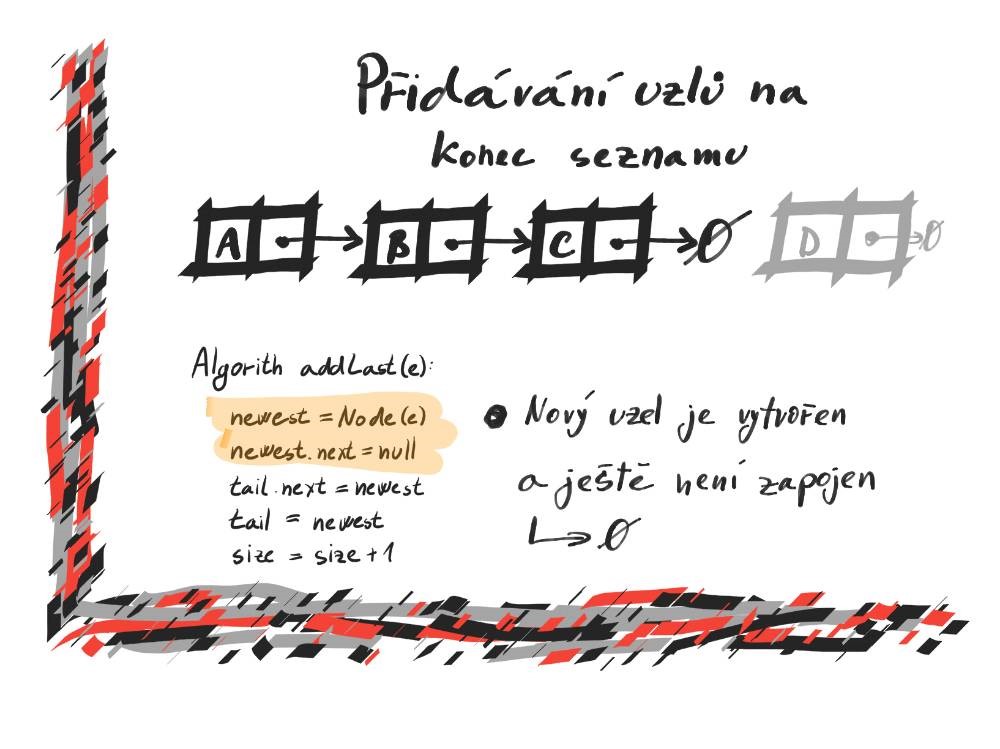 Přidávání uzlů na
konec seznamu
A B C ∅ D ∅
Algorith addLast(e):
newest = Node(e)
newest.next = null
tail.next = newest
tail = newest
size = size + 1
● Nový uzel je vytvořen
a ještě není zapojen
↳ ∅